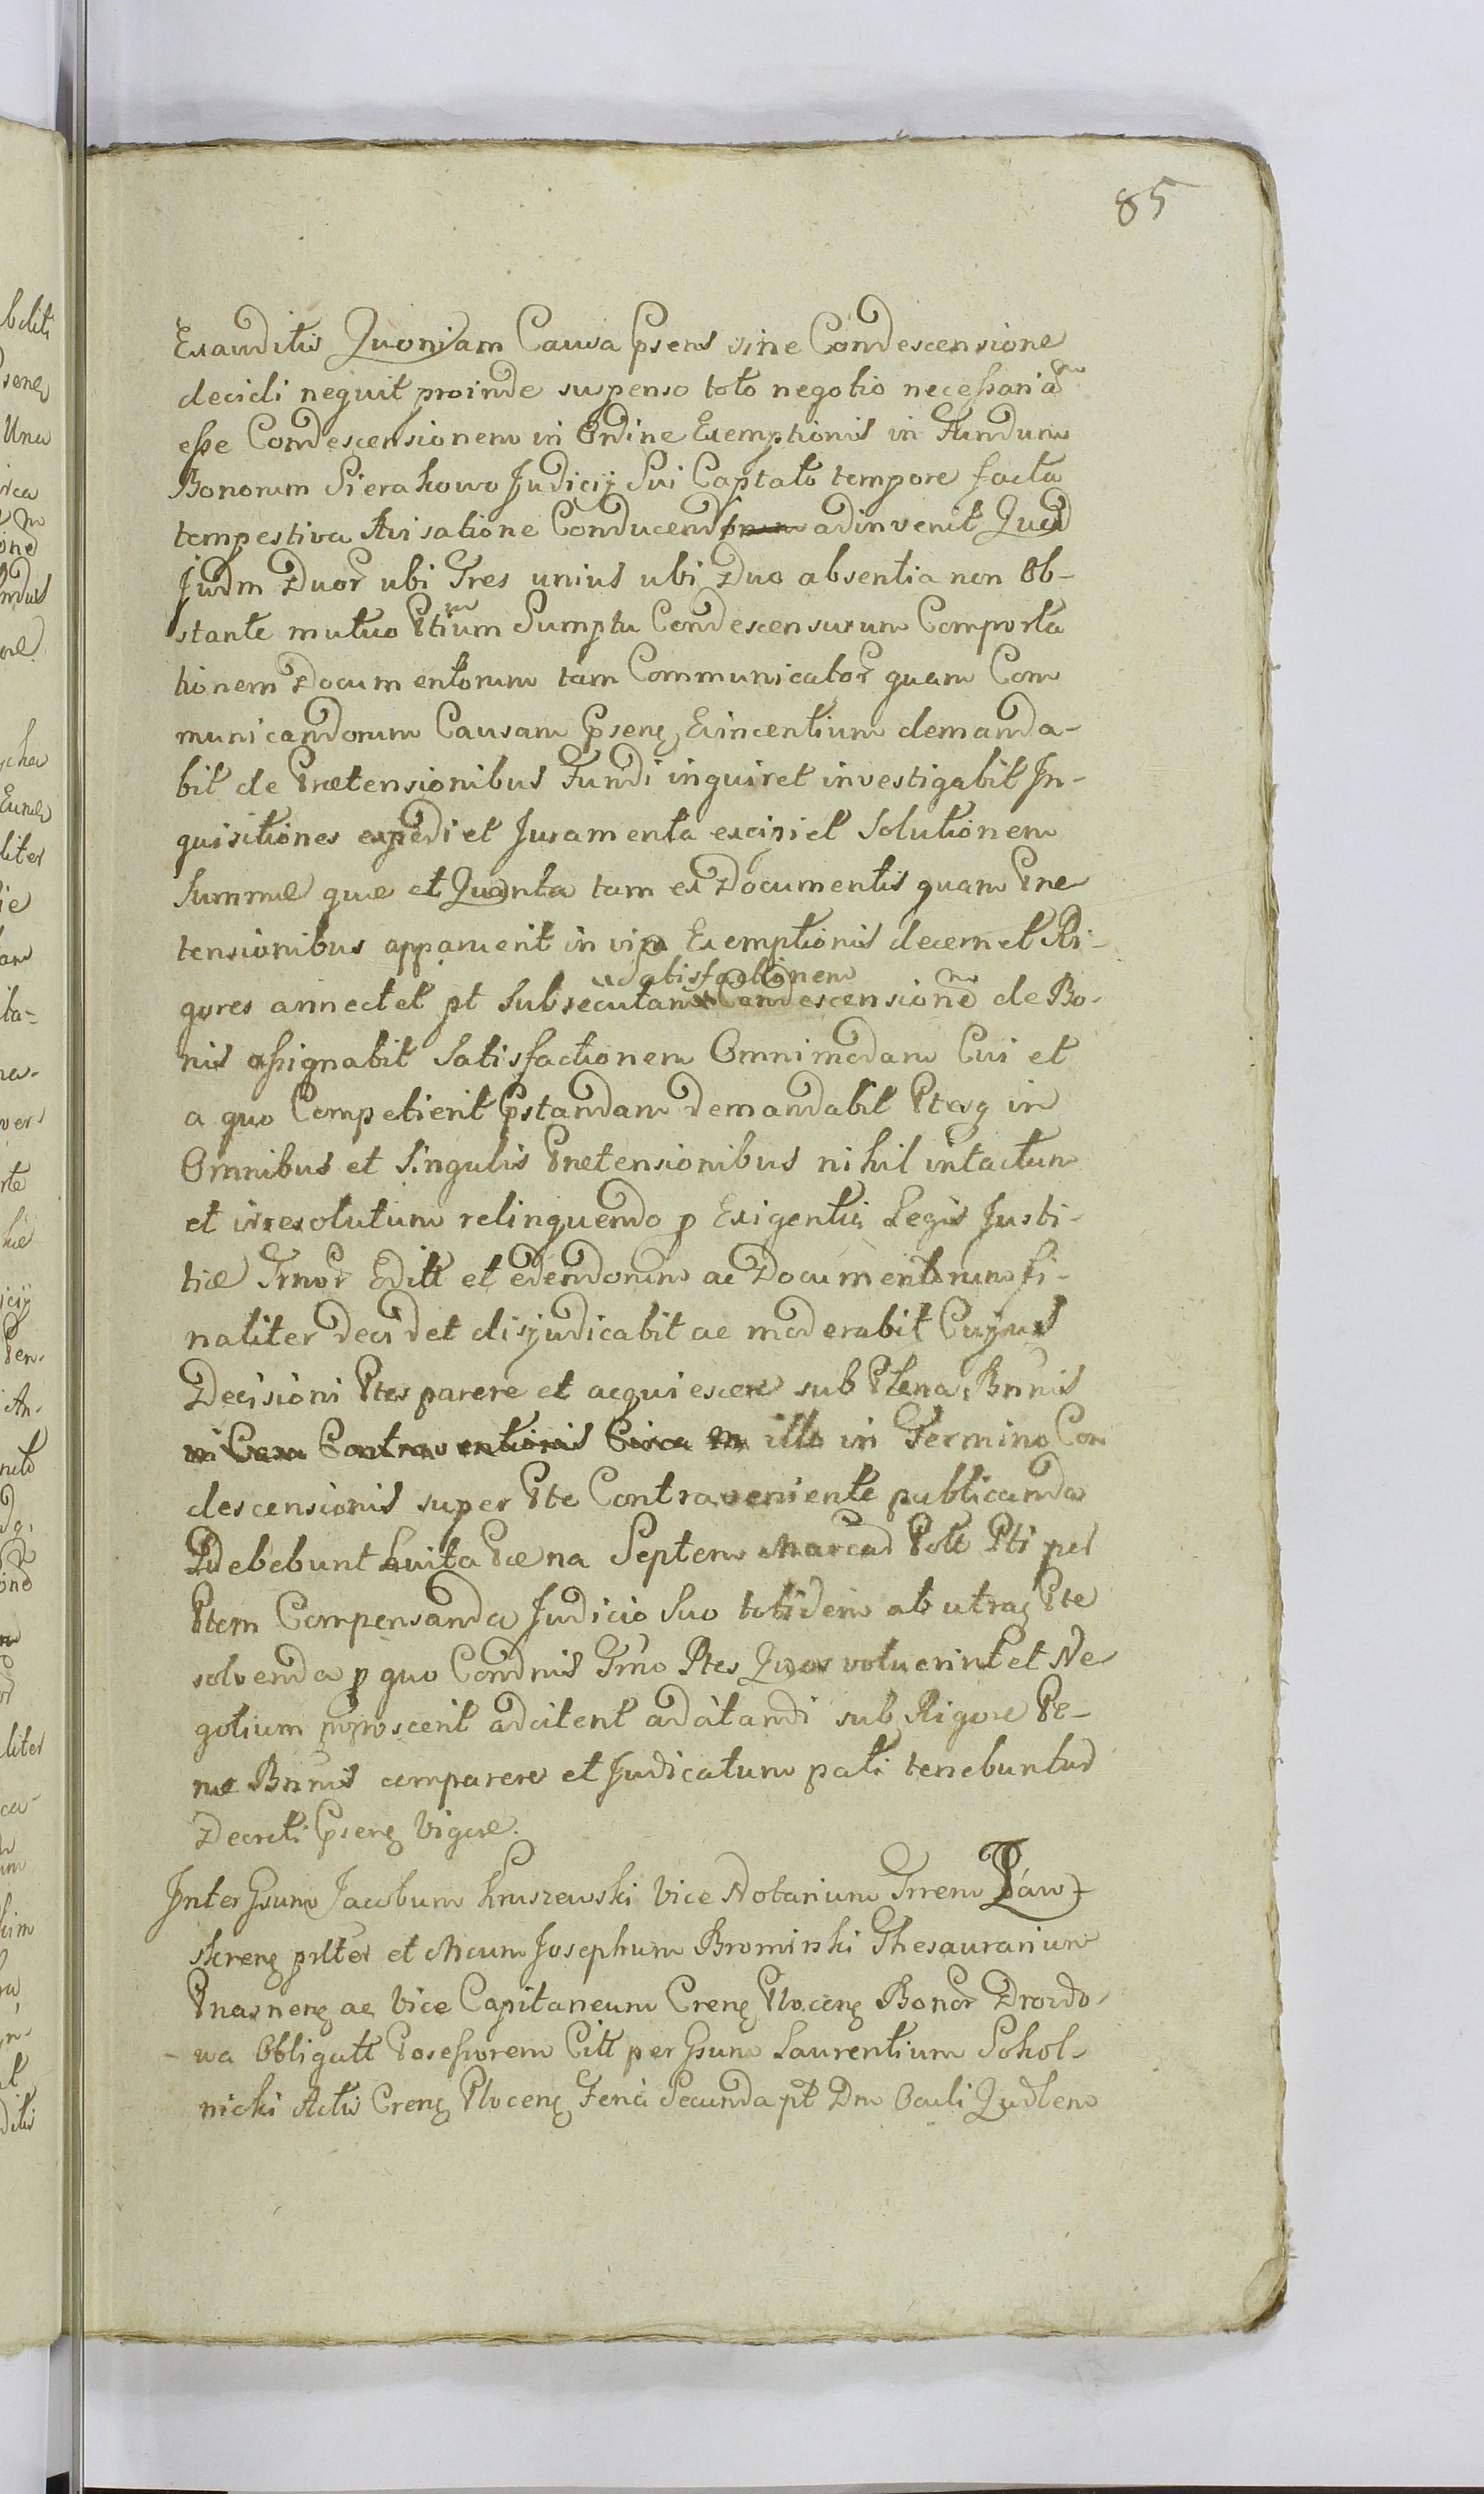 85
Exauditis Quoniam Causa Psens sine Condescensione
decidi nequit proinde suspenso toto negotio necessaria͠m
esse Condescensionem in Ordine Exemptionis in Fundum
Bonorum Sierakowo Judicij Sui Captato tempore facta
tempestiva Avisatione Conducend adinvenit Quod
Judm Duor ubi Tres unius ubi Duo absentia non Ob-
stante mutuo Ptium Sumptu Condescensurum Comporta
tionem Documentorum tam Communicator quam Com
municandorum Causam Pseng Evincentium demanda-
bit de Prætensionibus Fundi inquiret investigabit In-
quisitiones expediet Juramenta excipiet Solutionem
Summæ quæ et Quanta tam ex Documentis quam Præ
tensionibus apparuerit in vim Exemptionis decernet Ri-
satisfactionem
gores annectet pt Subsecutam Condescensione de Bo-
nis assignabit Satisfactionem Omnimodam Cui et
a quo Competierit Pstandam demandabit Ptesq in
Omnibus et Singulis Prætensionibus nihil intactum
et irresolutum relinquendo p Exigentia Legis Justi-
tiæ Trnor Editt et edendorum ac Documentorum fi-
naliter decidet disjudicabit ac moderabit Cujus
Decisioni Ptes parere et acquiescere sub Plena Bnnis
in Cara Contraventionis Circa m illo in Termino Con
descensionis super Pte Contraveniente publicanda
Debebunt Luita Pœna Septem Marcar Poll Pti per
Ptem Compensanda Judicio Suo totidem ab utraq Pte
solvenda p quo Condnis Trno Ptes Quos voluerint et Ne
gotium poposcerit adcitent adcitandi sub Rigore Pæ-
næ Bnnis comparere et Judicatum pati tenebuntur
Decreti Pseng Vigore.
Inter Gsum Jacobum Kruszewski Vice Notarium Trrem Zaw-
skreng pltter et Mcum Josephum Brominski Thesaurarium
Praesneng ac Vice Capitaneum Creng Ploceng Bonor Drozdo-
wa Obligatt Possessorem Citt per Gsum Laurentium Sokol-
nicki Actis Creng Ploceng Feria Secunda pt Dm Oculi Qudlem